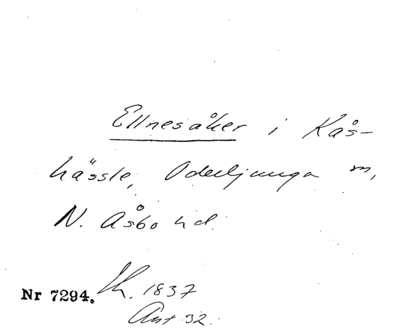 Ellnesåker i Kås-
hässle, Oderljunga sn,
N. Åsbo hd.
Nr 7294. Th. 1837
Ant 32.